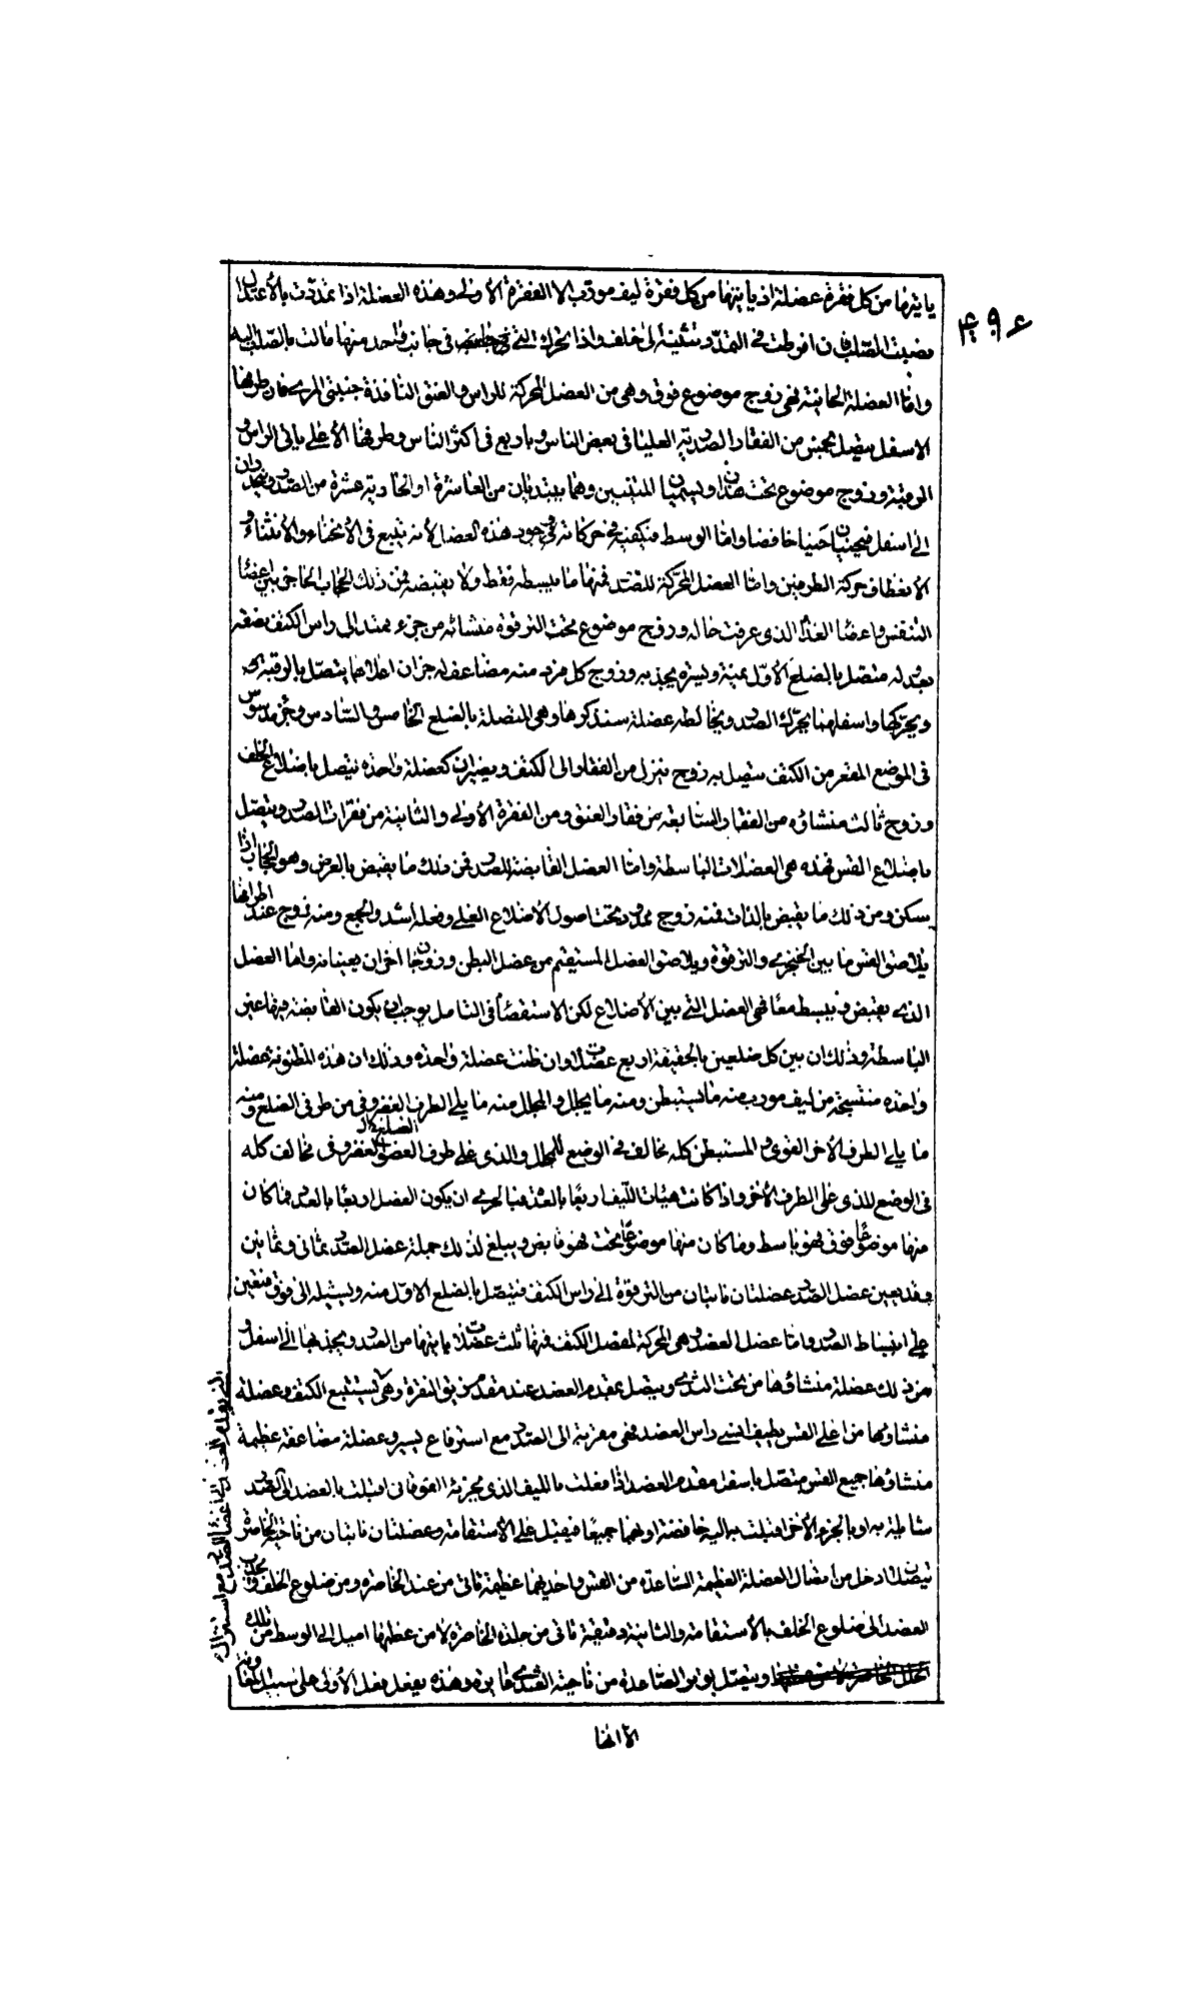 ٤٩٤
ياتيها من كل فقرة عضلة اذ ياتيها من كل فقرة ليف مورّب الا الفقرة الأولى وهذه العضلة اذا تمددت بالأعتدال
نصبت الصلب فان افرطت في التمدّد تثنيه الى خلف واذا تحركت التي في جانب واحد منها مالت بالصلب اليه
وامّا العضلة الحانية فهي زوج موضوع فوق وهي من العضل المحركة للراس والعنق النافذة جنبتي المري وطرفها
الاسفل يتصل بخمس من الفقار الصدرية العليا في بعض الناس وباربع في اكثر الناس وطرفها الأعلى ياتي الراس و
الرقبة وزوج موضوع تحت هذا ويسميان المتنين وهما يبتديان من العاشرة او الحادية عشرة من الصدر وينحدران
الى اسفل فيحنيان حنيا خافضا وامّا الوسط فيكفيه في حركاته وجود هذه العضل لأنه يتبع في الأنحناء والأنثناء و
الأنعطاف حركة الطرفين وامّا العضل المحركة للصدر فمنها ما يبسطه فقط ولا يقبضه فمن ذلك الحجاب الحاجز بين اعضا
التنفس واعضا الغذا الذي عرفت حاله وزوج موضوع تحت الترقوة منشائه من جزء يمتد الى راس الكتف نصفه
بعد له متصل بالضلع الأوّل يمنة ويسرة يجذبه وزوج كل فرد منه مضاعف له جزان اعلاهما يتصل بالرقبة
ويحركها واسفلهما يحرّك الصدر ويخالطه عضلة سنذكرها وهي المتصلة بالضلع الخامس والسادس وزوج مدسوس
في الموضع المقعر من الكتف يتصل به زوج ينزل من الفقار الى الكتف ويصيران كعضلة واحدة يتصل باضلاع الخلف
وزوج ثالث منشاؤه من الفقار السابعة من فقار العنق ومن الفقرة الاولى والثانية من فقرات الصدر ويتصل
باضلاع القس فهذه هي العضلات الباسطة وامّا العضل القابضة للصدر فمن ذلك ما يقبض بالعرض وهو الحجاب اذا
يسكن ومن ذلك ما يقبض بالذات فمنه زوج ممدود تحت اصول الاضلاع العلي وفعله الشد والجمع ومنه زوج عند اطرافها
يلاصق القس ما بين الخنجري والترقوة ويلاصق العضل المستقيم من عضل البطن وزوجان اخران يعينانه وامّا العضل
الذي يقبض ويبسط معًا فهي العضل التي بين الأضلاع لكن الاستقصاء في التامل يوجب ان يكون القابضة فيها غير
الباسطة وذلك ان بين كل ضلعين بالحقيقة اربع عضلات وان ظنت عضلة واحدة وذلك ان هذه المظنونة عضلة
واحدة منتسجة من ليف مورب منه ما يستبطن ومنه ما يجلل والمجلل منه ما يلي الطرف الغضروفي من طرفي الضلع ومنه
ما يلي الطرف الأخر القوي والمستبطن كله مخالف في الوضع للمجلل والذي على طرف الضلع الغضروفي مخالف كله
في الوضع للذي على الطرف الأخر واذا كانت هيئات الليف اربعًا بالعدد فبالحري ان يكون العضل اربعًا بالعدد فما كان
منها موضوعًا فوق فهو باسط وما كان منها موضوعًا تحت فهو قابض ويبلغ لذلك جملة عضل الصدر ثماني وثمانين
وقد يعين عضل الصدر عضلتان تاتيان من الترقوة الى راس الكتف فيتصل بالضلع الاوّل منه ويشيله الى فوق فتعين
على انبساط الصدر وامّا عضل العضد وهي المحركة لمفصل الكتف فمنها ثلث عضلات ياتيها من الصدر ويجذبها الى اسفل و
من ذلك عضلة منشاؤها من تحت الثدي ويتصل بمقدم العضد عند مقدم زيق النقرة وهي يستتبع الكتف وعضلة
منشاؤها من اعلى القس يطيف بانسي راس العضد فهي مقربة الى الصدر مع استرفاع يسير وعضلة مضاعفة عظيمة
منشاؤها جميع القس يتصل باسفل مقدم العضد اذا فعلت بالليف الذي بجزئه الفوقاني اقبلت بالعضد الى الصدر
شايلة به او بالجزء الأخر اقبلت به اليه خافضة او بهما جميعًا فيقبل على الأستقامة وعضلتان تاتيان من ناحية الخاصرة
يتصلان ادخل من اتصال العضلة العظيمة الصاعدة من القس واحديهما عظيمة تاتي من عند الخاصرة ومن ضلوع الخلف ويجذب
العضد الى ضلوع الخلف بالأستقامة والثانية دقيقة تاتي من جلدة الخاصرة لا من عظمها اميل الى الوسط من تلك
ويتصل بوتر الصاعدة من ناحية الثدي غايرة وهذه يفعل فعل الأولى على سبيل المعاونة
الا انها